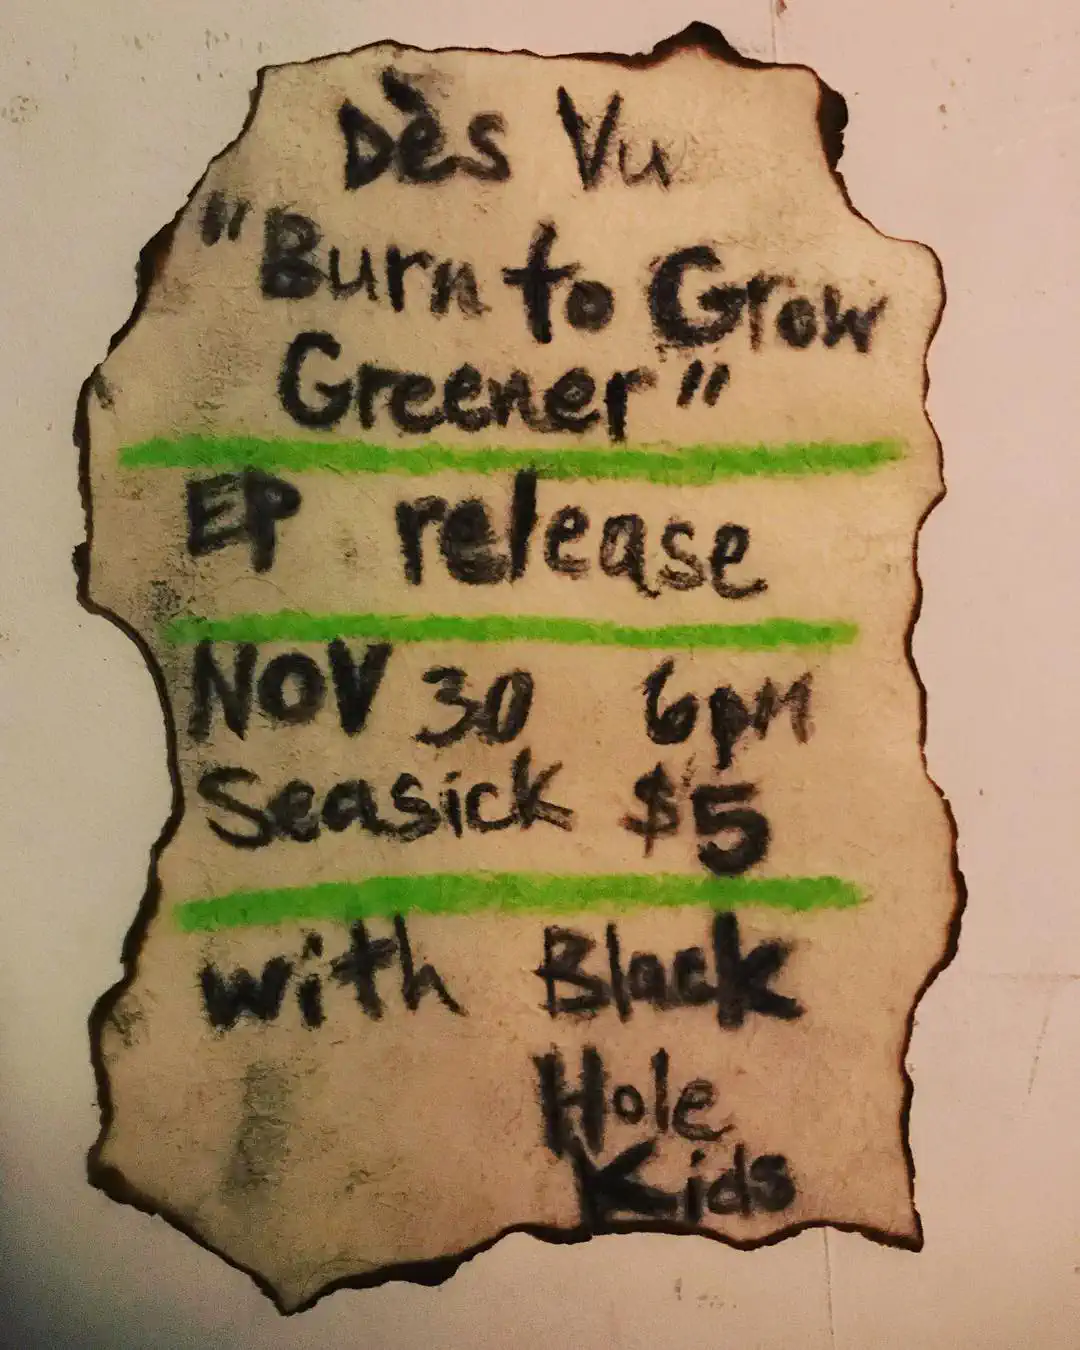 Dès Vu
"Burn to Grow
Greener"
EP release
NOV 30 6pM
Seasick $5
with Black
Hole
Kids